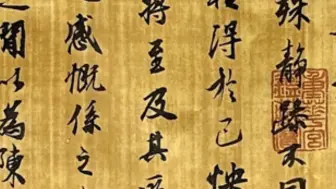 殊靜躁不同
得於己怏
將至及其所
感慨係之
之間以為陳